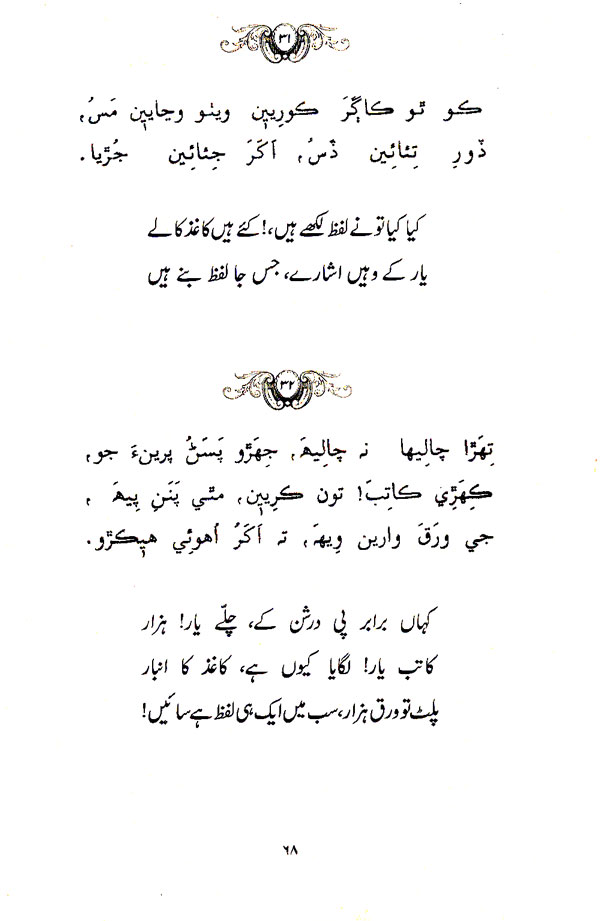 ۳۱
ڪو ٿو ڪاڳَرَ ڪورِيين ويٺو وڃايين مَسُ،
ڏورِ تِئائِين ڏَسُ، اَکَرَ جِئائين جُڙيا.
کیا کیا تو نے لفظ لکھے ہیں،! کئے ہیں کاغذ کالے
یار کے وہیں اشارے، جس جا لفظ بنے ہیں
۳۲
تِهَڙا چالِيها نہ چالِيهَ، جِهَڙو پَسَڻُ پرينءَ جو،
ڪِهَڙِي ڪاتِبَ! تون ڪرِيين، مٿي پَنَنِ پِيهَ ،
جي ورَقَ وارين وِيهَہ، تہ اَکَرُ اُهوئِي هيڪڙو.
کہاں برابر پی درشن کے، چلّے یار! ہزار
کاتب یار! لگایا کیوں ہے، کاغذ کا انبار
پلٹ تو ورق ہزار، سب میں ایک ہی لفظ ہے سائیں!
۶۸